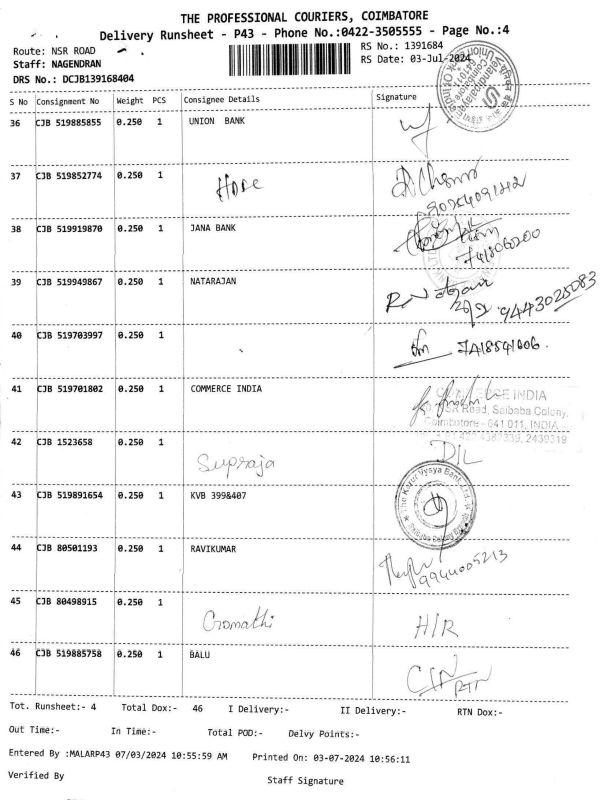 THE PROFESSIONAL COURIERS, COIMBATORE
Delivery Runsheet - P43 - Phone No.:0422-3505555 - Page No.:4
Route: NSR ROAD
RS No.: 1391684
Staff: NAGENDRAN
RS Date: 03-Jul-2024
DRS No.: DCJB139168404
S No Consignment No Weight PCS Consignee Details Signature
36 CJB 519885855 0.250 1 UNION BANK
37 CJB 519852774 0.250 1 HDFC
38 CJB 519919870 0.250 1 JANA BANK
39 CJB 519949867 0.250 1 NATARAJAN 9443025083
40 CJB 519703997 0.250 1
41 CJB 519701802 0.250 1 COMMERCE INDIA
COMMERCE INDIA
NSR Road, Saibaba Colony,
Coimbatore - 641 011, INDIA
42 CJB 1523658 0.250 1 Supraja D/L
43 CJB 519891654 0.250 1 KVB 399&407
The Karur Vysya Bank Ltd.
44 CJB 80501193 0.250 1 RAVIKUMAR 9944005213
45 CJB 80498915 0.250 1 Gomathi H/R
46 CJB 519885758 0.250 1 BALU RTN
Tot. Runsheet:- 4 Total Dox:- 46 I Delivery:- II Delivery:- RTN Dox:-
Out Time:- In Time:- Total POD:- Delvy Points:-
Entered By :MALARP43 07/03/2024 10:55:59 AM Printed On: 03-07-2024 10:56:11
Verified By
Staff Signature